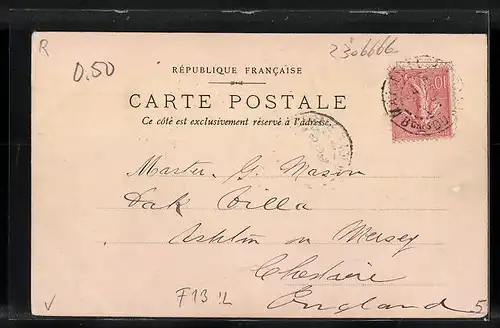 R
2306666
0.50
RÉPUBLIQUE FRANÇAISE
CARTE POSTALE
Ce côté est exclusivement réservé à l'adresse.
10
Master. G. Mason
Oak Villa
Ashton on Mersey
Cheshire
England
V
F13
5